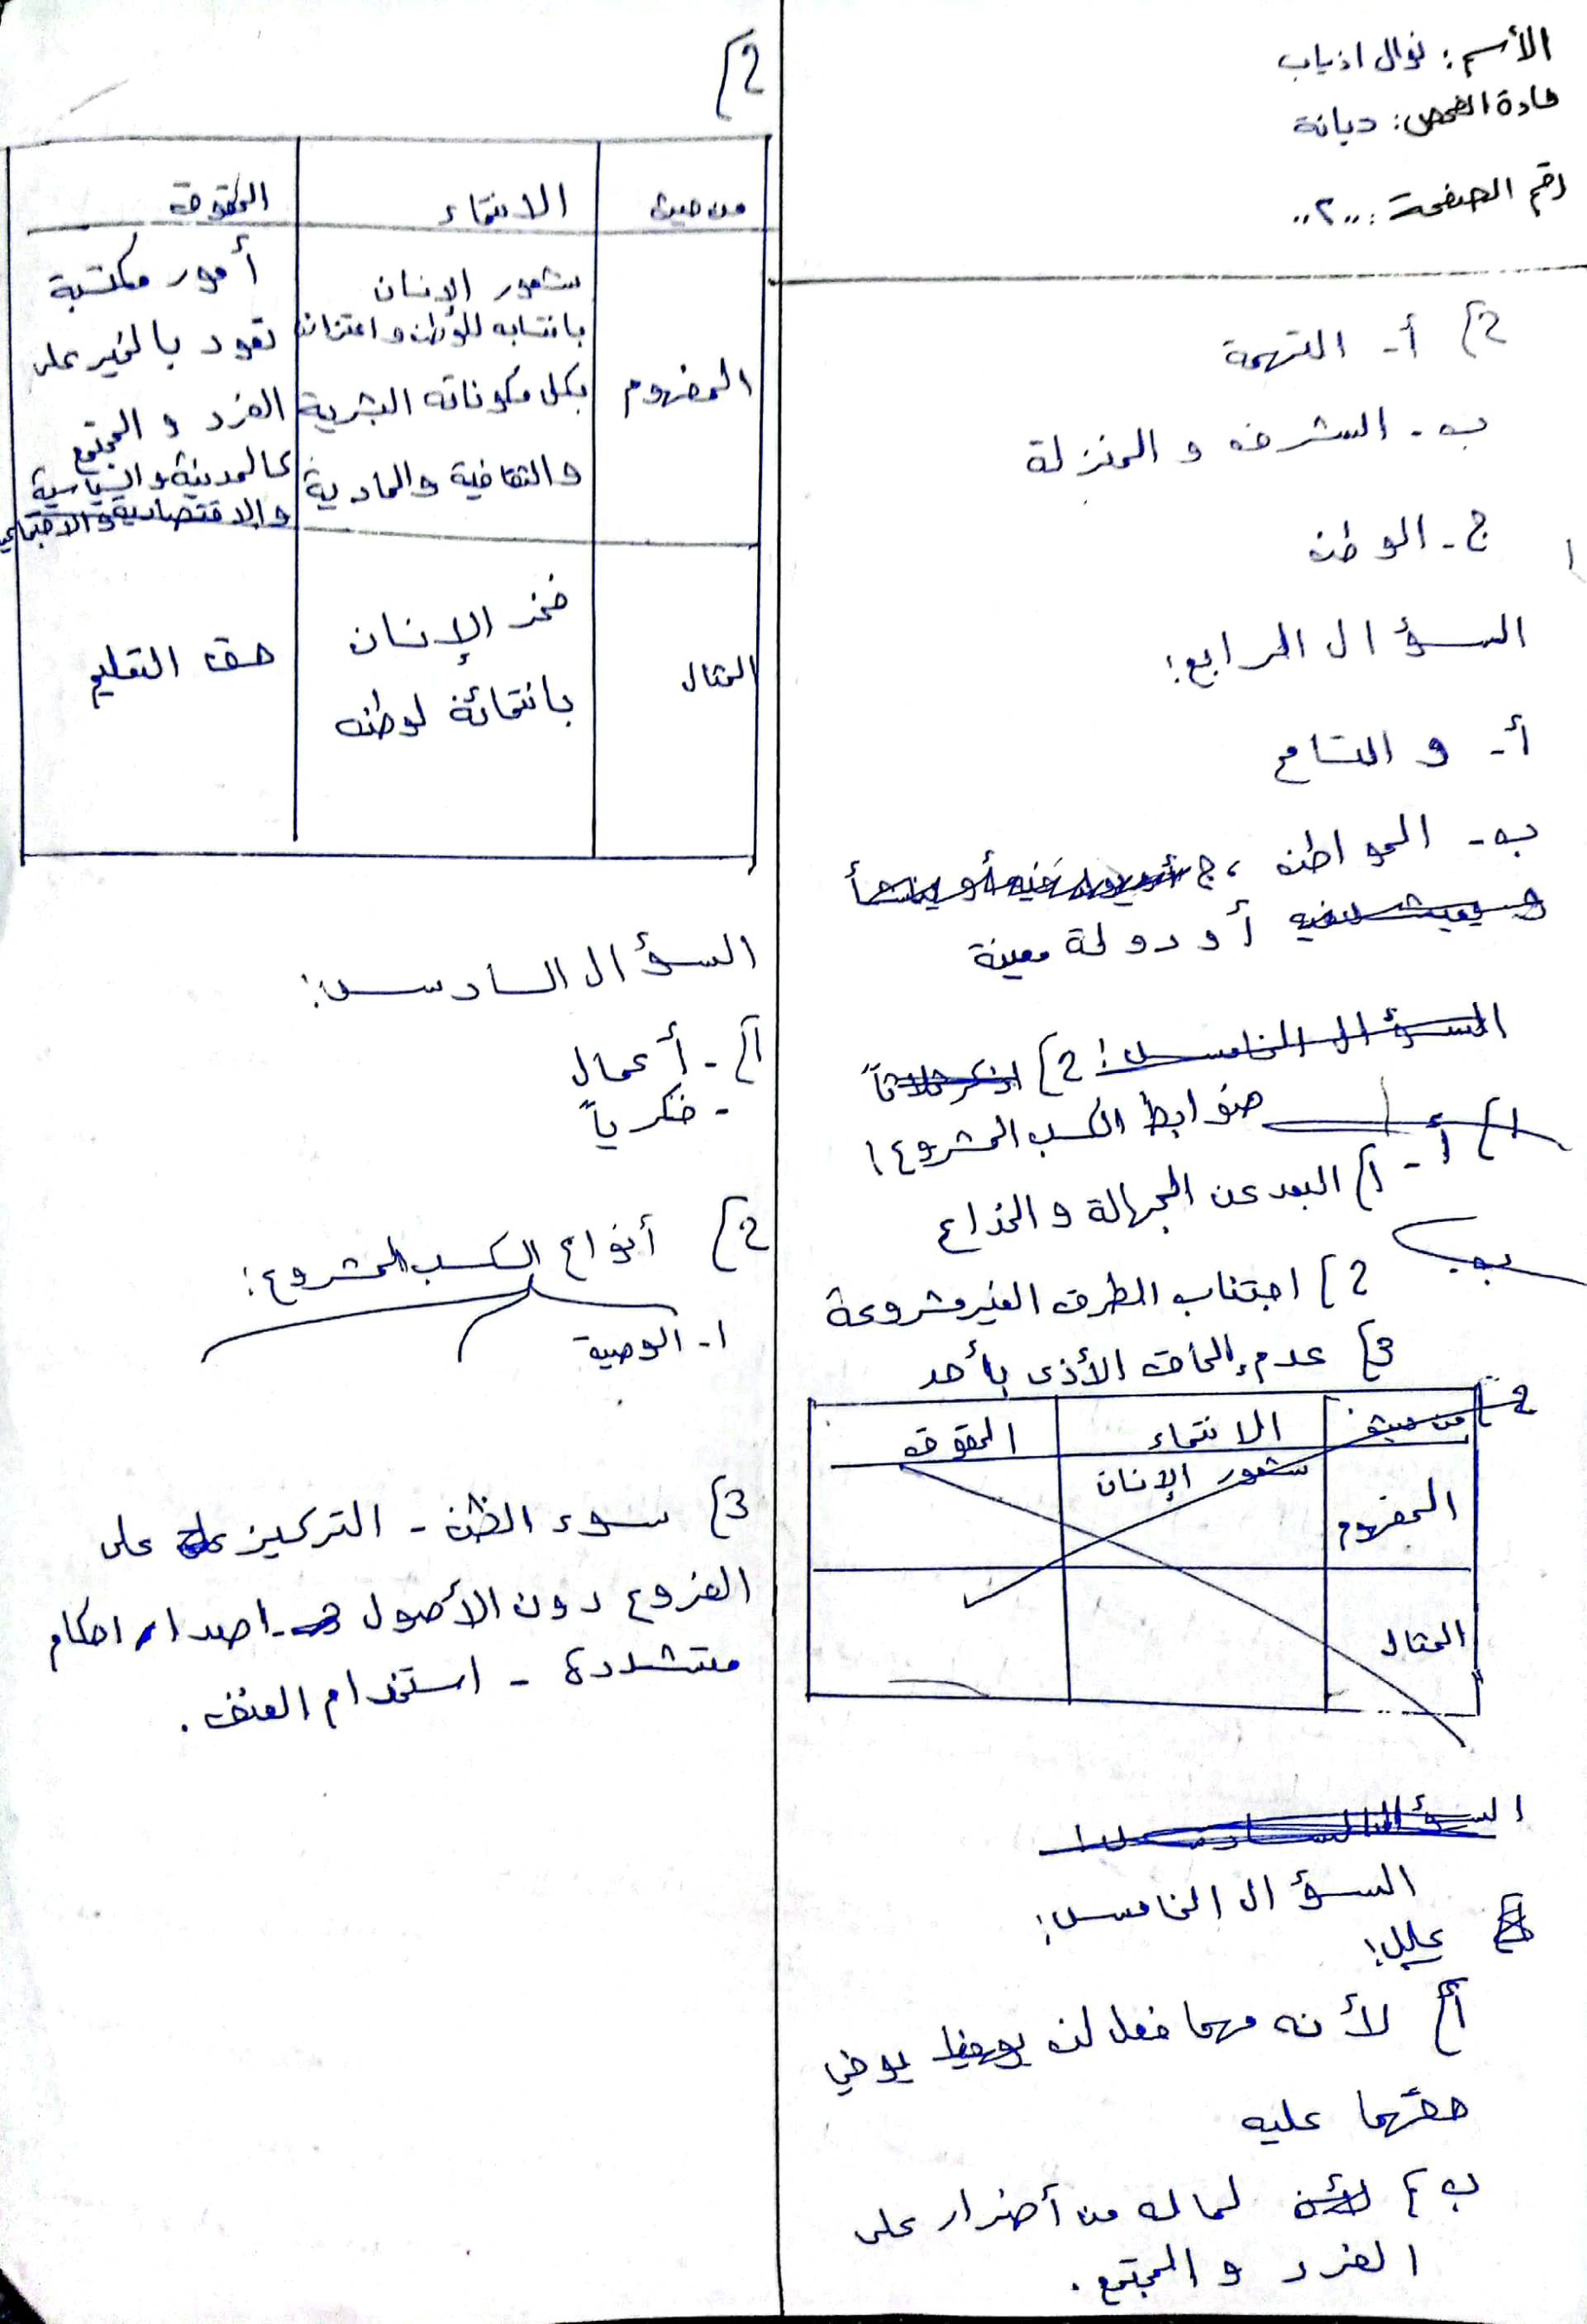 الأسم: نوال اذياب
مادة الفحص: ديانة
رقم الصفحة: ,,٢,,
2} أ- التهمة
ب- الشرف و المنزلة
ج- الوطن
السؤال الرابع:
أ- و التسامح
ب- المواطن ، ج
أو دولة معينة
السؤال الخامس: 2} اذكر ثلاثاً
ضوابط الكسب المشروع:
1} أ- 1} البعد عن الجهالة و الخداع
ب-
2} اجتناب الطرق الغير مشروعة
3} عدم إلحاق الأذى بأحد
2} من حيث الانتماء الحقوق
المفهوم شعور الإنسان
المثال
السؤال السادس:
السؤال الخامس:
علل:
أ} لأنه مهما فعل لن يوفي
حقهما عليه
ب} لأن لما له من أضرار على
الفرد و المجتمع.
2}
من حيث الانتماء الحقوق
المفهوم
شعور الإنسان
بانتسابه للوطن و اعتزازه
بكل مكوناته البشرية
والثقافية والمادية
أمور مكتسبة
تعود بالخير على
الفرد و المجتمع
كالمدينة والسياسية
والاقتصادية والاجتماعي
المثال
فخر الإنسان
بانتمائة لوطنه
حق التعليم
السؤال السادس:
1} - أعمال
- فكرياً
2} أنواع الكسب المشروع:
1- الوصية
3} سوء الظن - التركيز على
الفروع دون الأصول - اصدار احكام
متشددة - استخدام العنف.